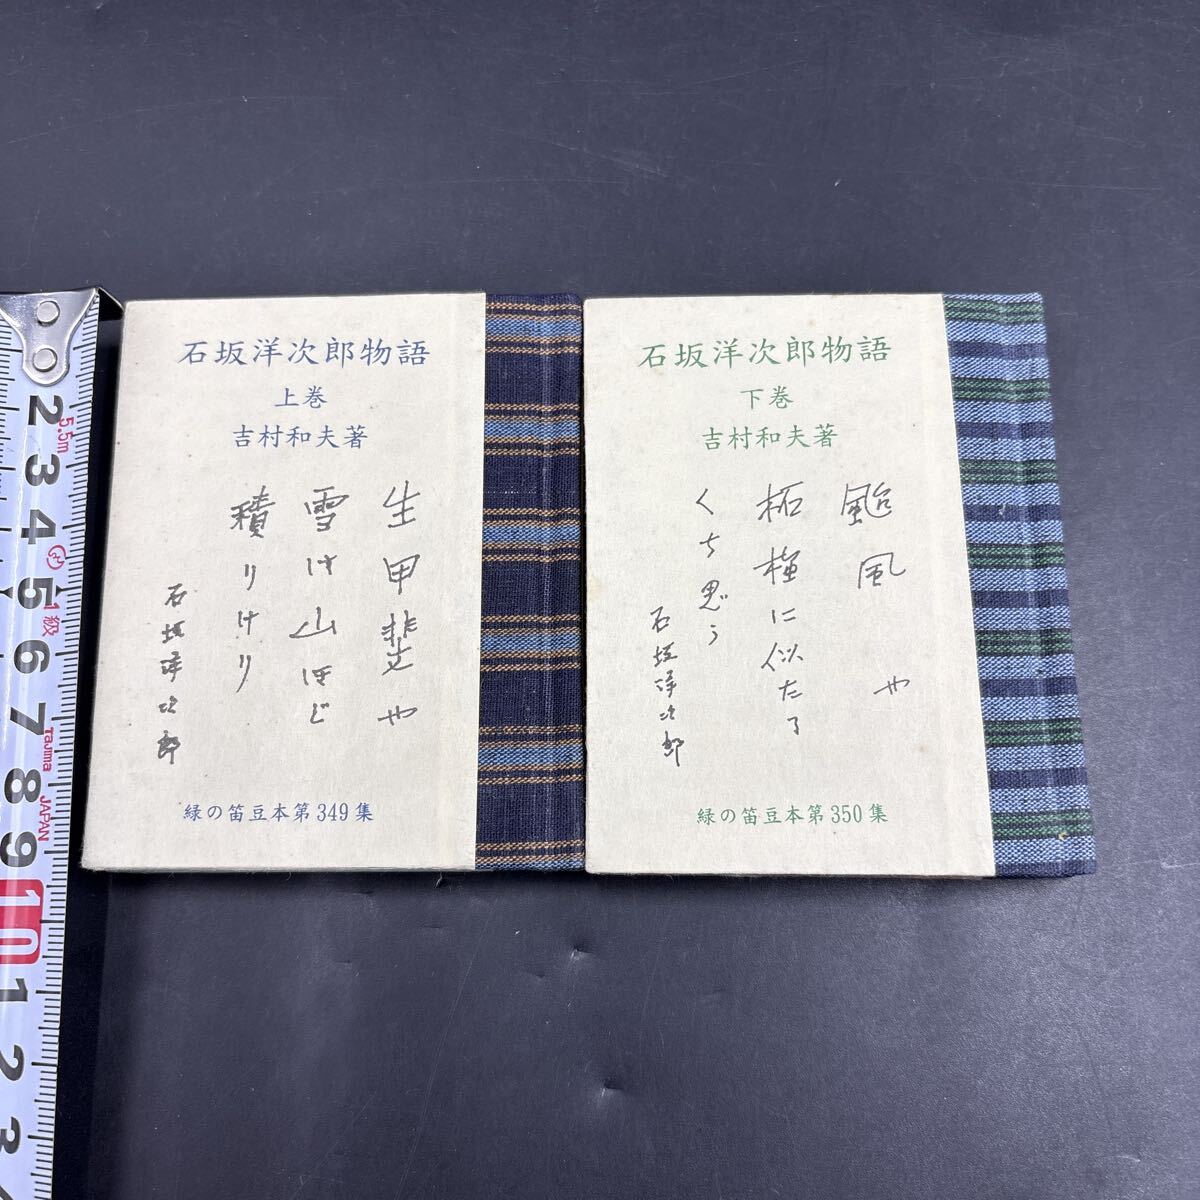 石坂洋次郎物語
上巻
吉村和夫著
生甲斐や
雪は山ほど
積りけり
石坂洋次郎
緑の笛豆本第349集
石坂洋次郎物語
下巻
吉村和夫著
颱風や
柘榴に似たる
くち思う
石坂洋次郎
緑の笛豆本第350集
2
3
4
5
6
7
8
9
10
1
2
3
5.5m
1級
Tajima
JAPAN